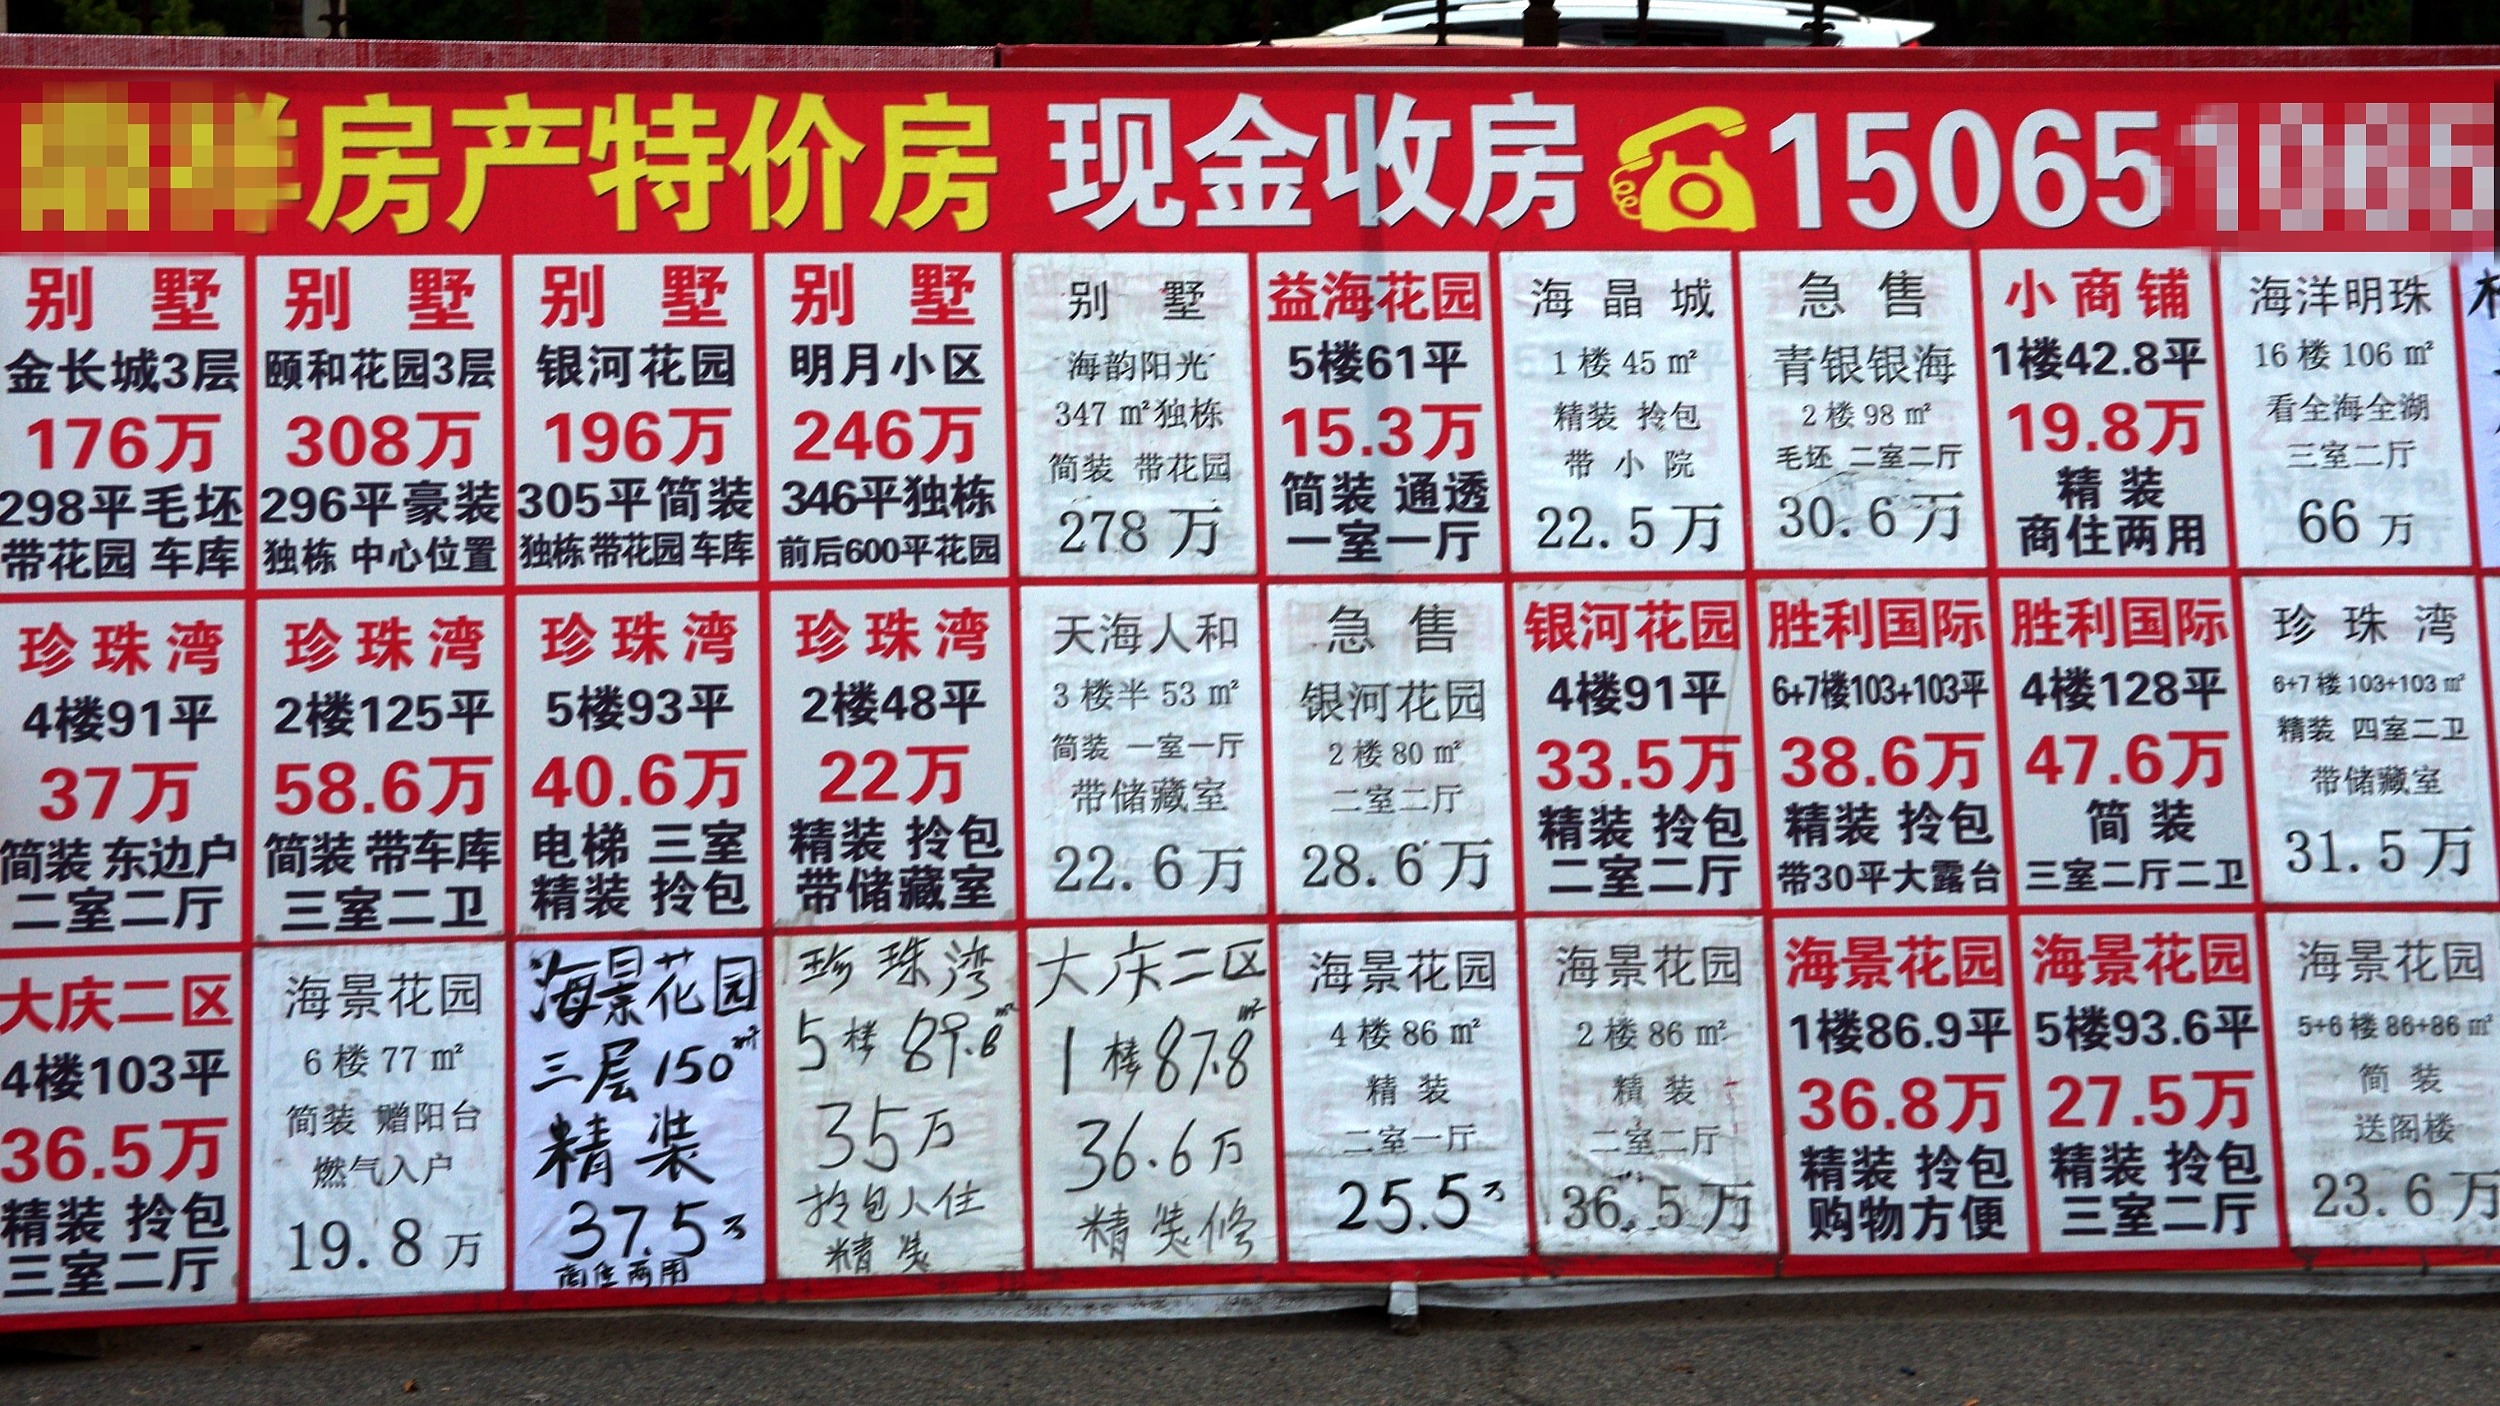 房产特价房 现金收房 15065
别墅
金长城3层
176万
298平毛坯
带花园 车库
别墅
颐和花园3层
308万
296平豪装
独栋 中心位置
别墅
银河花园
196万
305平简装
独栋 带花园 车库
别墅
明月小区
246万
346平独栋
前后600平花园
别墅
海韵阳光
347㎡独栋
简装 带花园
278万
益海花园
5楼61平
15.3万
简装 通透
一室一厅
海晶城
1楼45㎡
精装 拎包
带小院
22.5万
急售
青银银海
2楼98㎡
毛坯 二室二厅
30.6万
小商铺
1楼42.8平
19.8万
精装
商住两用
海洋明珠
16楼106㎡
看全海全湖
三室二厅
66万
珍珠湾
4楼91平
37万
简装 东边户
二室二厅
珍珠湾
2楼125平
58.6万
简装 带车库
三室二卫
珍珠湾
5楼93平
40.6万
电梯 三室
精装 拎包
珍珠湾
2楼48平
22万
精装 拎包
带储藏室
天海人和
3楼半53㎡
简装 一室一厅
带储藏室
22.6万
急售
银河花园
2楼80㎡
二室二厅
28.6万
银河花园
4楼91平
33.5万
精装 拎包
二室二厅
胜利国际
6+7楼103+103平
38.6万
精装 拎包
带30平大露台
胜利国际
4楼128平
47.6万
简装
三室二厅二卫
珍珠湾
6+7楼103+103㎡
精装 四室二卫
带储藏室
31.5万
大庆二区
4楼103平
36.5万
精装 拎包
三室二厅
海景花园
6楼77㎡
简装 赠阳台
燃气入户
19.8万
海景花园
三层150㎡
精装
37.5万
商住两用
珍珠湾
5楼89.8㎡
35万
拎包入住
精装
大庆二区
1楼87.8㎡
36.6万
精装修
海景花园
4楼86㎡
精装
二室一厅
25.5万
海景花园
2楼86㎡
精装
二室二厅
36.5万
海景花园
1楼86.9平
36.8万
精装 拎包
购物方便
海景花园
5楼93.6平
27.5万
精装 拎包
三室二厅
海景花园
5+6楼86+86㎡
简装
送阁楼
23.6万